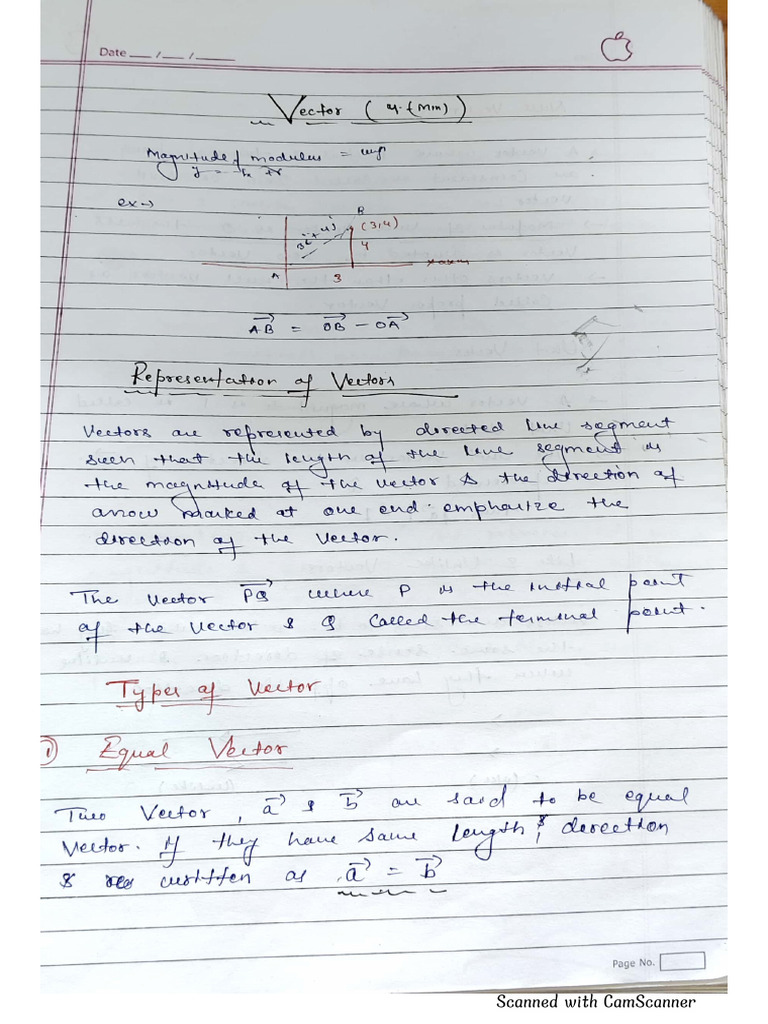 Date __/__/____
Vector (
Magnitude / modulus =
ex→
B
3i + 4j (3,4)
4
A 3
AB→ = OB→ - OA→
Representation of Vectors
Vectors are represented by directed line segment
such that the length of the line segment is
the magnitude of the vector & the direction of
arrow marked at one end emphasize the
direction of the vector.
The vector PQ→ where P is the initial point
of the vector & Q called the terminal point.
Types of Vector
① Equal Vector
Two Vector, a→ & b→ are said to be equal
Vector. If they have same length & direction
& written as a→ = b→
Page No.
Scanned with CamScanner